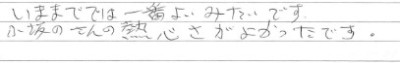 いままででは一番よいみたいです
小坂のてんの熱心さがよかったです。